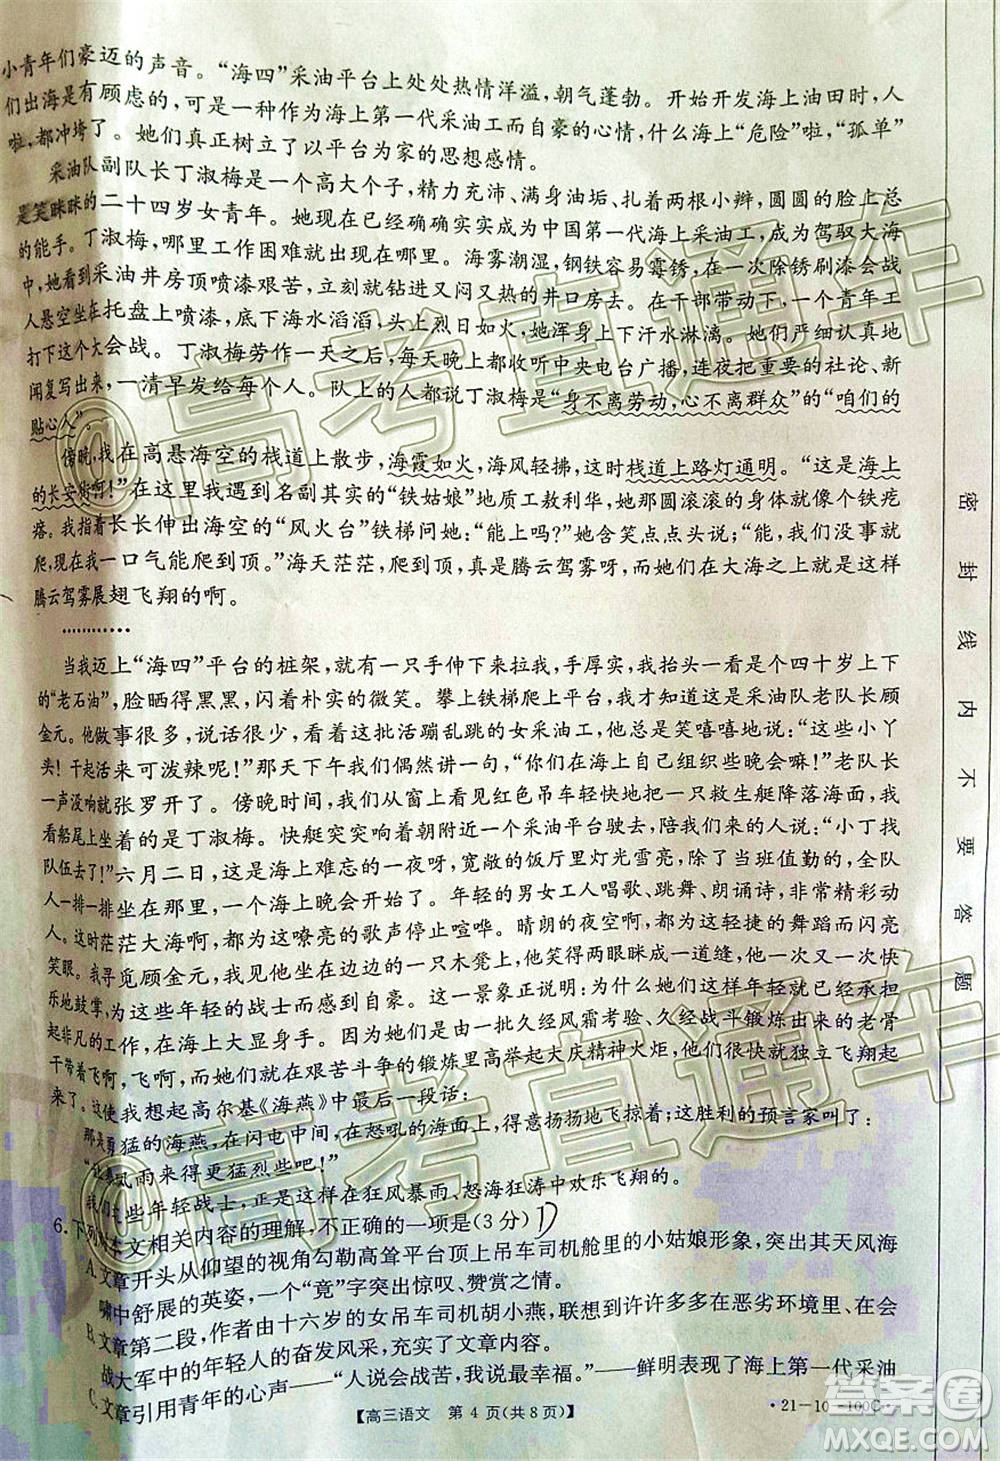 小青年们豪迈的声音。“海四”采油平台上处处热情洋溢，朝气蓬勃。开始开发海上油田时，人
们出海是有顾虑的，可是一种作为海上第一代采油工而自豪的心情，什么海上“危险”啦，“孤单”
啦，都冲垮了。她们真正树立了以平台为家的思想感情。
采油队副队长丁淑梅是一个高大个子，精力充沛、满身油垢、扎着两根小辫，圆圆的脸上总
是笑眯眯的二十四岁女青年。她现在已经确确实实成为中国第一代海上采油工，成为驾驭大海
的能手。丁淑梅，哪里工作困难就出现在哪里。海雾潮湿，钢铁容易霉锈，在一次除锈刷漆会战
中，她看到采油井房顶喷漆艰苦，立刻就钻进又闷又热的井口房去。在干部带动下，一个青年工
人悬空坐在托盘上喷漆，底下海水滔滔，头上烈日如火，她浑身上下汗水淋漓。她们严细认真地
打下这个大会战。丁淑梅劳作一天之后，每天晚上都收听中央电台广播，连夜把重要的社论、新
闻复写出来，一清早发给每个人。队上的人都说丁淑梅是“身不离劳动，心不离群众”的“咱们的
贴心人”。
傍晚，我在高悬海空的栈道上散步，海霞如火，海风轻拂，这时栈道上路灯通明。“这是海上
的长安街呵！”在这里我遇到名副其实的“铁姑娘”地质工敖利华，她圆滚滚的身体就像个铁疙
瘩。我指着长长伸出海空的“风火台”铁梯问她：“能上吗？”她含笑点点头说：“能，开始胆小不敢
爬，现在一口气能爬到顶。”海天茫茫，爬到顶，真是腾云驾雾呀，而她们在大海之上，是能够
腾云驾雾展翅飞翔的啊。
…………
当我迈上“海四”平台的桩架，就有一只手伸下来拉我，手厚实，我抬头一看是个四十岁上下
的“老石油”，脸晒得黑黑，闪着朴实的微笑。攀上铁梯爬上平台，我才知道这是采油队老队长顾
金元。他做事很多，说话很少，看着这批活蹦乱跳的女采油工，总是笑嘻嘻地说：“这些小丫
头！干起活来可泼辣呢！”那天下午我们偶然讲一句，你们在海上自己组织些晚会嘛！”老队长
一声没响就张罗开了。傍晚时，我从窗口上看见红色吊车轻快地把一只救生艇降落海面，我
看船尾上坐着的是丁淑梅。快艇突突响着朝附近一个采油平台驶去，陪我们来的人说：“小丁找
队伍去了！”六月二日，这是海上难忘的一夜呀，宽敞的饭厅里灯光雪亮，除了当班值勤的，全队
人一排一排坐在那里，一个海上晚会开始了。年轻的男女工人唱歌、跳舞、朗诵诗，非常精彩动
人。这时茫茫大海啊，都为这嘹亮的歌声停止喧哗。晴朗的夜空啊，都为这轻捷的舞蹈而闪亮
笑眼。我寻觅顾金元，他正坐在那边的一只木凳上，笑得两眼眯成一道缝，满脸皱纹在颤动，快
乐地鼓掌，为这些年轻的战士而感到自豪。这一景象正说明：为什么这些姑娘们已经能承担
起非凡的工作，在海上大显身手。因为她们是由一批久经风霜考验、久经战斗锻炼出来的老骨
干带着飞啊，飞啊，她们就在艰苦斗争的锻炼里高举起大庆精神火炬，她们很快就独立飞翔起
来了。这使我想起高尔基《海燕》中最后一段话：
那是勇猛的海燕，在闪电中间，在怒吼的海面上，得意扬扬地飞掠着；这胜利的预言家叫了：
“让暴风雨来得更猛烈些吧！”
我们这些年轻战士，正是这样在狂风暴雨、怒海狂涛中欢乐飞翔的。
6.下列对本文相关内容的理解，不正确的一项是(3分) D
A.文章开头从仰望的视角勾勒高耸平台顶上吊车司机舱里的小姑娘形象，突出其天风海
啸中舒展的英姿，一个“竟”字突出惊叹、赞赏之情。
B.文章第二段，作者由十六岁的女吊车司机胡小燕，联想到许许多多在恶劣环境里、在会
战大军中的年轻人的奋发风采，充实了文章内容。
C.文章引用青年的心声——“人说会战苦，我说最幸福。”——鲜明表现了海上第一代采油
【高三语文 第4页(共8页)】
·21-10-100C·
密封线内不要答题
@高考直通车
@高考直通车
答案圈
MXQE.COM